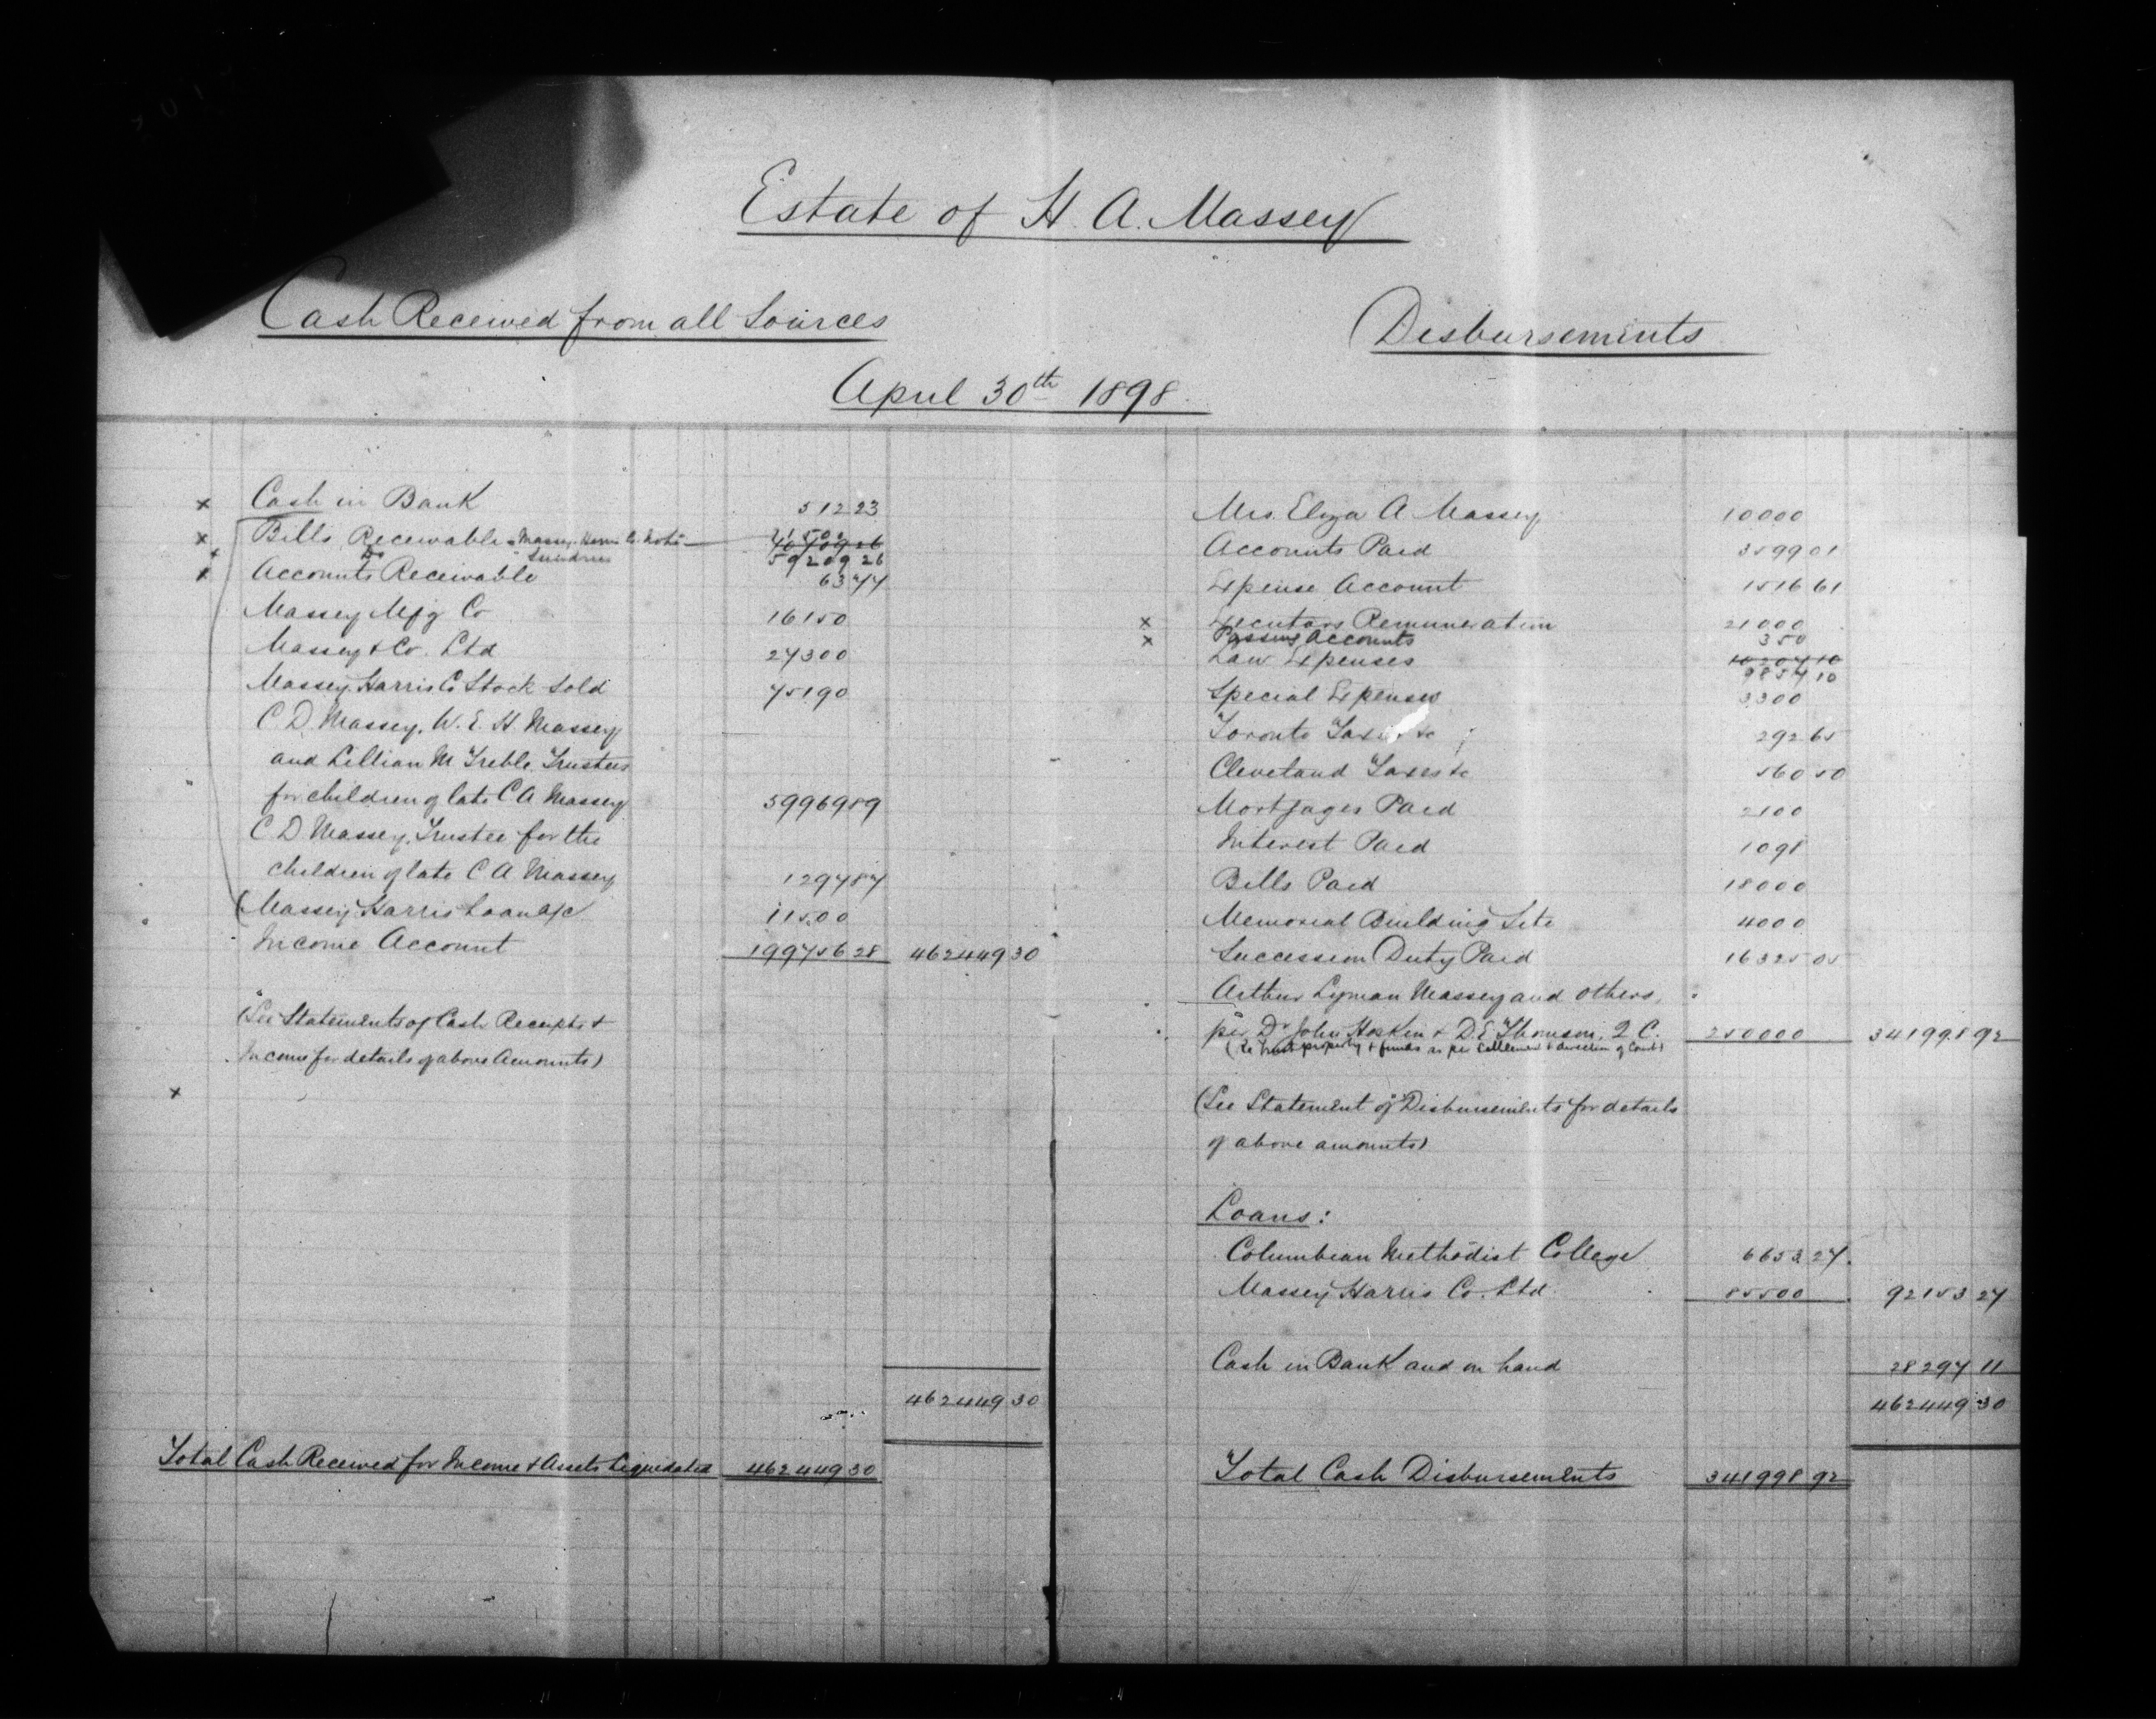 Estate of H. A. Massey
Cash Received from all Sources
Disbursements
April 30th 1898.
x Cash in Bank 512 23
x Bills Receivable - Massey Harris Co. Note 11500
70709 26
x Do " Sundries 59209 26
x Accounts Receivable 63 77
Massey Mfg Co 16150
Massey & Co. Ltd 27300
Massey Harris Co Stock Sold 75190
C D. Massey, W. E. H Massey
and Lillian M Treble, Trustees
for children of late C A Massey 59969 89
C D Massey, Trustee for the
children of late C A Massey 1297 87
Massey Harris Loan a/c 11500
Income Account 199756 28 462449 30
(See Statements of Cash Receipts &
Income for details of above Amounts)
x
462449 30
Total Cash Received for Income & Assets Liquidated 462449 30
Mrs. Eliza A Massey 10000
Accounts Paid 3599 01
Expense Account 1516 61
x Executors Remuneration 21000
x Passing Accounts 350
Law Expenses 10207 10
9857 10
Special Expenses 3300
Toronto Taxes &c 292 65
Cleveland Taxes &c 560 50
Mortgages Paid 2100
Interest Paid 1098
Bills Paid 18000
Memorial Building Site 4000
Succession Duty Paid 16325 05
Arthur Lyman Massey and others,
per Dr John Hoskin & D. E. Thomson, Q. C. 250000 341998 92
(Re Trust property & funds as per Settlement & direction of Court)
(See Statement of Disbursements for details
of above amounts)
Loans:
Columbian Methodist College 6653 27
Massey Harris Co. Ltd. 85500 92153 27
Cash in Bank and on hand 28297 11
462449 30
Total Cash Disbursements 341998 92